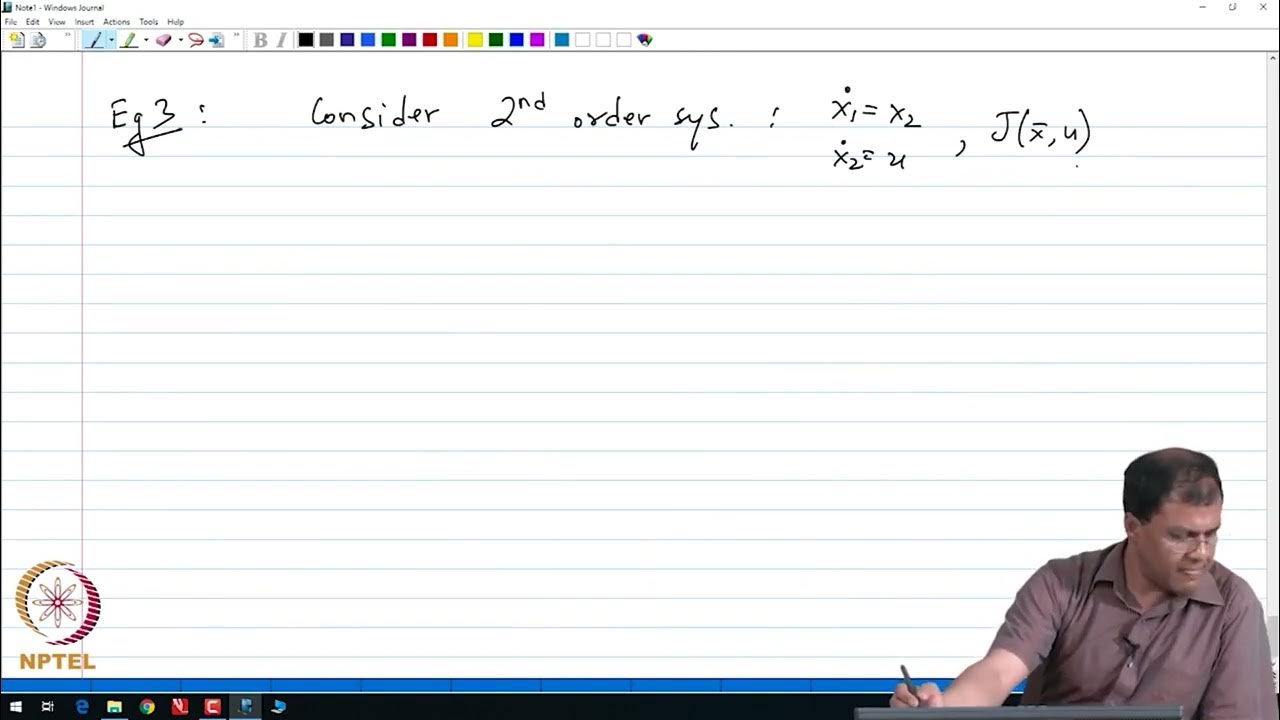 Note1 - Windows Journal
File Edit View Insert Actions Tools Help
B I
Eg 3 : Consider 2nd order sys. : ẋ1 = x2 , J(x̄, u)
ẋ2 = u
NPTEL